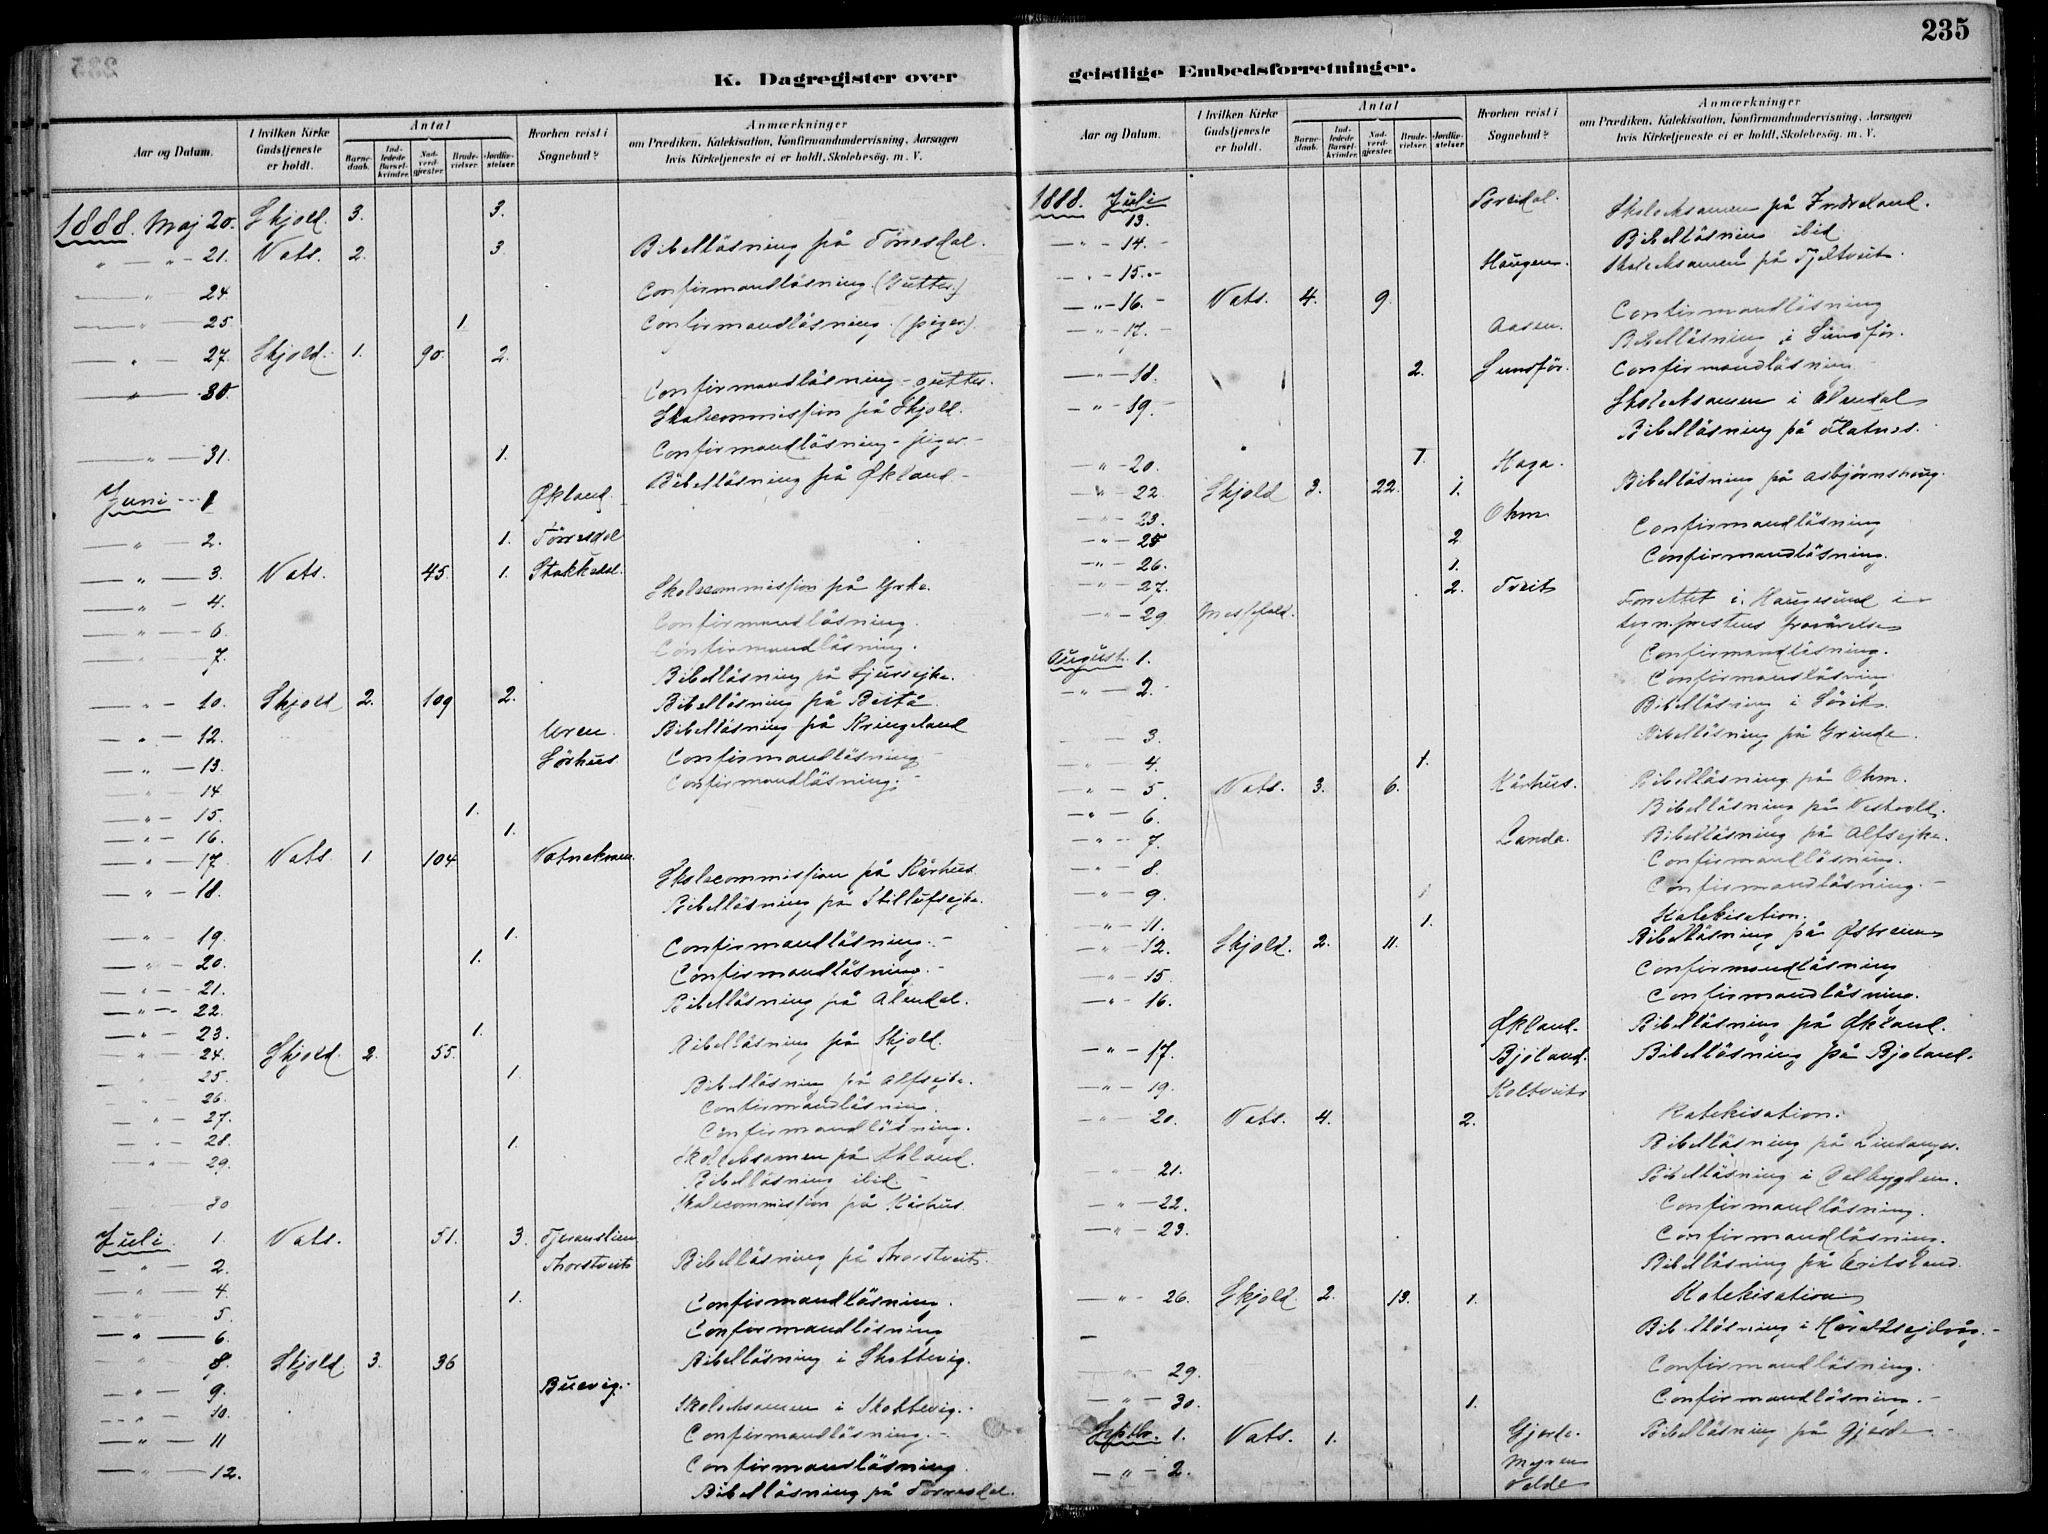 235
K. Dagregister over
Aar og Datum. I hvilken Kirke Gudstjeneste er holdt. Antal Barnedaab. Indledede Barselkvinder. Nadverdgjæster. Brudevielser. Jordfæstelser. Hvorhen reist i Sognebud? Anmærkninger om Prædiken, Katekisation, Konfirmandundervisning, Aarsagen hvis Kirketjeneste ei er holdt, Skolebesög. m. V.
1888. Maj 20. Skjold. 3. 3.
" — " - 21. Vats. 2. 3. Bibellösning på Tönesdal.
" 24. Confirmandläsning. (Gutter)
" 25. 1. Confirmandläsning. (piger).
" 27. Skjold. 1. 90. 2.
" 30. Confirmandläsning - gutter.
Skolecommission på Skjold.
" 31. 1. Confirmandläsning - piger -
Bibelläsning på Økland -
Juni - 1 Økland
" 2. 1. Törresdal
" 3. Vats. 45. 1. Stakkedal.
" 4. Skolecommission på Yrke.
" 6. Confirmandläsning.
" 7. Confirmandläsning.
Bibelläsning på
" 10. Skjold 2. 109 2. Bibelläsning på
" 12. Uren Bibelläsning på Kringeland
" 13. Sörhus Confirmandläsning
" 14 Confirmandläsning. -
" 15. 1.
" 16. 1.
" 17. Vats 1 104
" 18. Skolecommission på Kårhus.
Bibelläsning på
" 19. 1. Confirmandläsning. -
" 20. 1. Confirmandläsning. -
" 21. Bibelläsning på Alendal.
" 22.
" 23. 1. Bibelläsning på Skjold.
" 24. Skjold. 2. 55.
" 25. 1. Bibelläsning på Alfsejke.
" 26. Confirmandläsning.
" 27. Confirmandläsning.
" 28. 1. Skoleeksamen på
" 29. Bibelläsning ibid. -
30 Skolecommission på Kårhus.
Juli. 1. Vats. 51. 3.
" 2. Thorstveit Bibelläsning på Thorstveit.
" 4. 1. Confirmandläsning.
" 5. Confirmandläsning
" 6. Bibelläsning i Skottevig.
" 8. Skjold. 3. 36
" 9. Buevig. -
" 10. Skoleeksamen i Skottevig. -
" 11 Confirmandläsning. -
" 12. Confirmandläsning
Bibelläsning på Törresdal.
geistlige Embedsforretninger.
Aar og Datum. I hvilken Kirke Gudstjeneste er holdt. Antal Barnedaab. Indledede Barselkvinder. Nadverdgjæster. Brudevielser. Jordfæstelser. Hvorhen reist i Sognebud? Anmærkninger om Prædiken, Katekisation, Konfirmandundervisning, Aarsagen hvis Kirketjeneste ei er holdt, Skolebesög. m. V.
1888. Juli 13. Skoleeksamen på Indreland.
" 14. - Bibelläsning ibid
" 15. - Haugen. Skoleeksamen på
" 16. - Vats. 4. 9. Confirmandläsning
" 17. - Aasen. Bibelläsning i Sunsför.
" 18. 2. Sunsför. Confirmandläsning
" 19. - Skoleeksamen i Alendal
Bibelläsning på Flatnes.
" 20. 1. Haga.
" 22. Skjold 3. 22. 1. Bibelläsning på Asbjörnshaug.
" 23. Ohm
" 25 2 Confirmandläsning
" 26. 1. Confirmandläsning.
" 27. 2. Tveit Forrettet i Haugesund i
" 29 Messefald. sogn.prestens fravärelse
August. 1. Confirmandläsning.
" 2. - Confirmandläsning
Bibelläsning i
" 3. Bibelläsning på Grinde.
" 4. 1.
" 5. Vats. 3. 6. Kårhus. Bibelläsning på Ohm.
" 6. Bibelläsning på
" 7. Landa. Bibelläsning på Alfsejke.
" 8. Confirmandläsning.
" 9. 1 Confirmandläsning. -
" 11. 1. Katekisation.
" 12. Skjold. 2. 11. Bibelläsning på Østreim
" 15 Confirmandläsning
" 16. Confirmandläsning.
Økland. Bibelläsning på Økland.
" 17. Bjoland. Bibelläsning på Bjoland.
" 19. Koltveit
" 20. Vats. 4. 2. Katekisation.
Bibelläsning på Lindanger.
" 21. Bibelläsning i Dalbygden.
" 22. Confirmandläsning.
" 23. Confirmandläsning.
Bibelläsning på
" 26. Skjold. 2. 13. 1. Katekisation
Bibelläsning i
" 29. Confirmandläsning.
" 30. 1. Confirmandläsning. -
Septbr. 1. Vats. 1. Gjerde. Bibelläsning på Gjerde. -
" 2. Myren